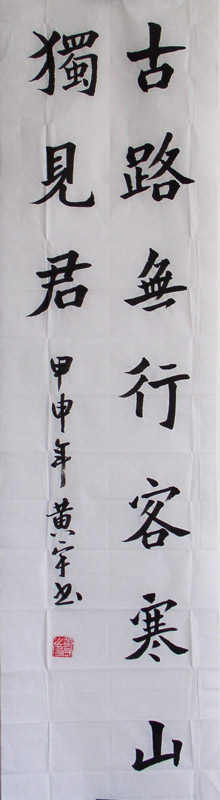 古路無行客寒山
獨見君
甲申年黄宇书